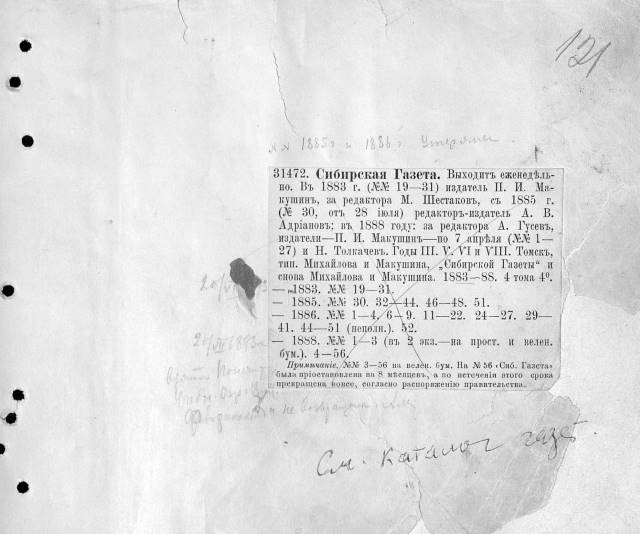 121
1885 г. и 1886 г.
31472. Сибирская Газета. Выходитъ еженедѣль-
но. Въ 1883 г. (№№ 19—31) издатель П. И. Ма-
кушинъ, за редактора М. Шестаковъ, съ 1885 г.
(№ 30, отъ 28 іюля) редакторъ-издатель А. В.
Адріановъ; въ 1888 году: за редактора А. Гусевъ,
издатели—П. И. Макушинъ—по 7 апрѣля (№№ 1—
27) и Н. Толкачевъ. Годы III. V. VI и VIII. Томскъ,
тип. Михайлова и Макушина, „Сибирской Газеты“ и
снова Михайлова и Макушина. 1883—88. 4 тома 4⁰.
— 1883. №№ 19—31.
— 1885. №№ 30. 32—44. 46—48. 51.
— 1886. №№ 1—4, 6—9. 11—22. 24—27. 29—
41. 44—51 (неполн.). 52.
— 1888. №№ 1—3 (въ 2 экз.—на прост. и велен.
бум.). 4—56.
Примѣчаніе. №№ 3—56 на велен. бум. На № 56 «Сиб. Газета»
была пріостановлена на 8 мѣсяцевъ, а по истеченіи этого срока
прекращена вовсе, согласно распоряженію правительства.
См. каталог газет.